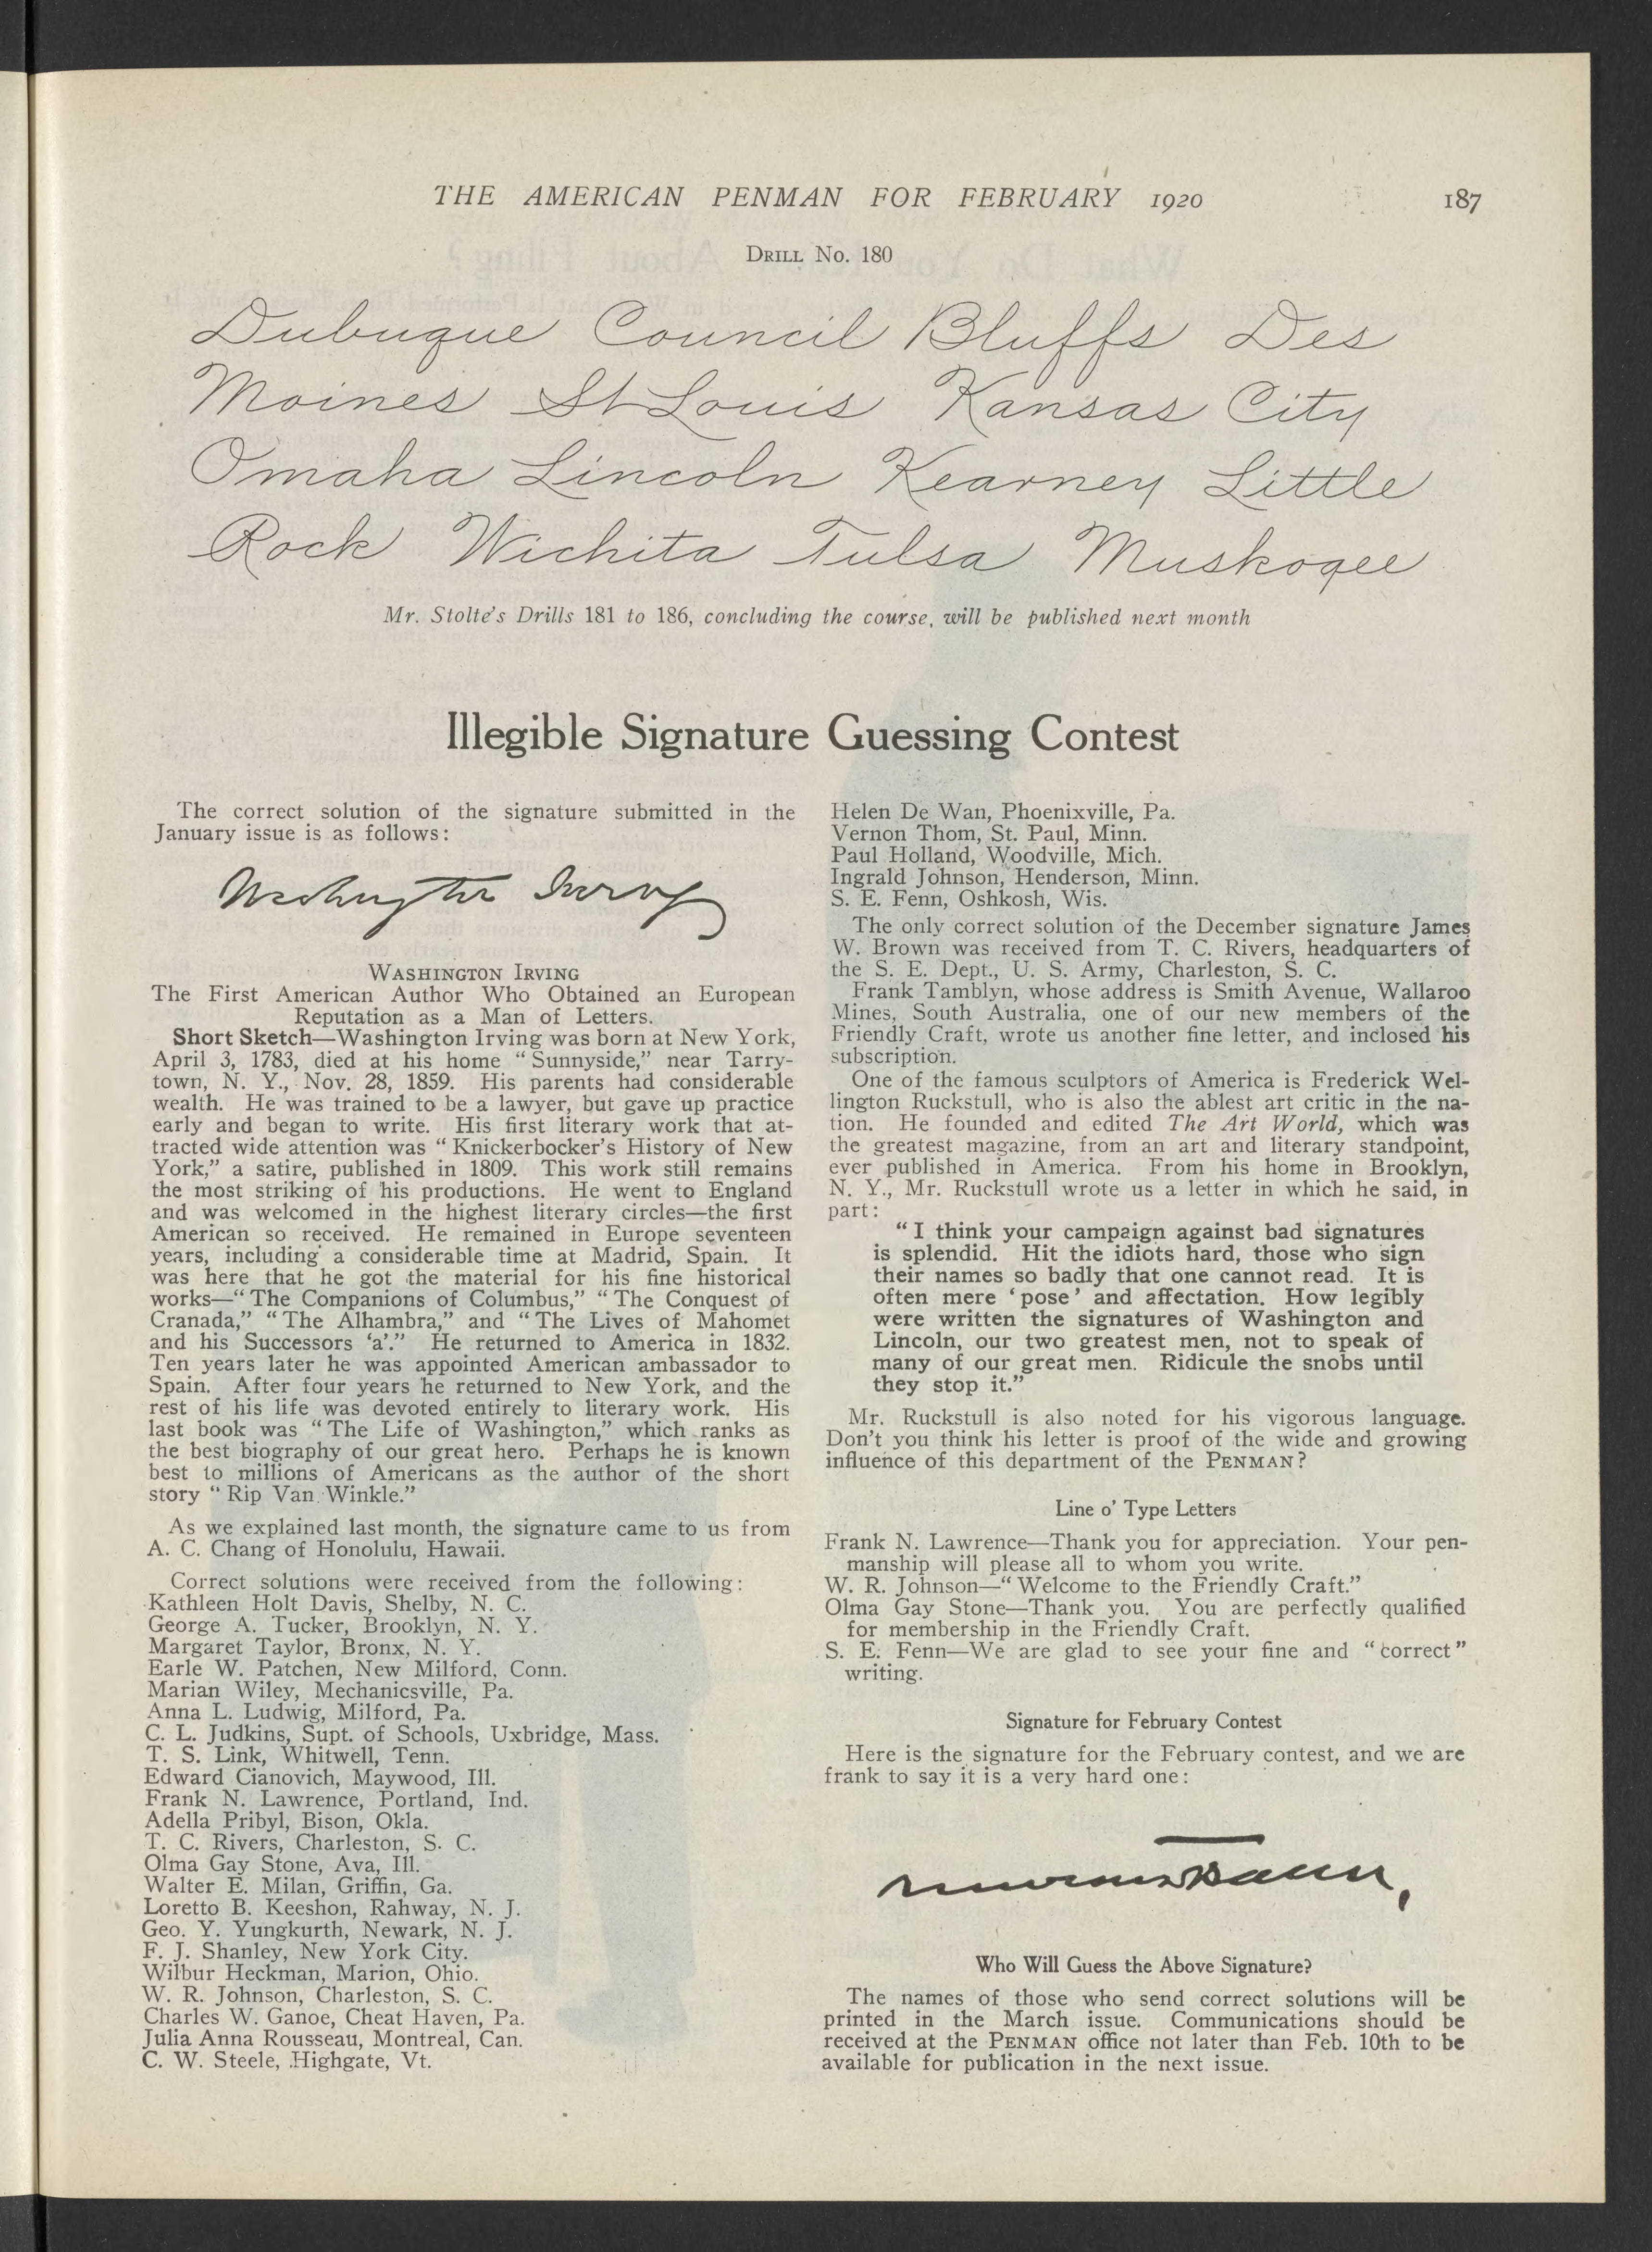 THE AMERICAN PENMAN FOR FEBRUARY 1920 187
DRILL No. 180
Dubuque Council Bluffs Des
Moines St Louis Kansas City
Omaha Lincoln Kearney Little
Rock Wichita Tulsa Muskogee
Mr. Stolte's Drills 181 to 186, concluding the course, will be published next month
Illegible Signature Guessing Contest
The correct solution of the signature submitted in the
January issue is as follows:
Washington Irving
WASHINGTON IRVING
The First American Author Who Obtained an European
Reputation as a Man of Letters.
Short Sketch—Washington Irving was born at New York,
April 3, 1783, died at his home "Sunnyside," near Tarry-
town, N. Y., Nov. 28, 1859. His parents had considerable
wealth. He was trained to be a lawyer, but gave up practice
early and began to write. His first literary work that at-
tracted wide attention was "Knickerbocker's History of New
York," a satire, published in 1809. This work still remains
the most striking of his productions. He went to England
and was welcomed in the highest literary circles—the first
American so received. He remained in Europe seventeen
years, including a considerable time at Madrid, Spain. It
was here that he got the material for his fine historical
works—"The Companions of Columbus," "The Conquest of
Cranada," "The Alhambra," and "The Lives of Mahomet
and his Successors 'a'." He returned to America in 1832.
Ten years later he was appointed American ambassador to
Spain. After four years he returned to New York, and the
rest of his life was devoted entirely to literary work. His
last book was "The Life of Washington," which ranks as
the best biography of our great hero. Perhaps he is known
best to millions of Americans as the author of the short
story "Rip Van Winkle."
As we explained last month, the signature came to us from
A. C. Chang of Honolulu, Hawaii.
Correct solutions were received from the following:
Kathleen Holt Davis, Shelby, N. C.
George A. Tucker, Brooklyn, N. Y.
Margaret Taylor, Bronx, N. Y.
Earle W. Patchen, New Milford, Conn.
Marian Wiley, Mechanicsville, Pa.
Anna L. Ludwig, Milford, Pa.
C. L. Judkins, Supt. of Schools, Uxbridge, Mass.
T. S. Link, Whitwell, Tenn.
Edward Cianovich, Maywood, Ill.
Frank N. Lawrence, Portland, Ind.
Adella Pribyl, Bison, Okla.
T. C. Rivers, Charleston, S. C.
Olma Gay Stone, Ava, Ill.
Walter E. Milan, Griffin, Ga.
Loretto B. Keeshon, Rahway, N. J.
Geo. Y. Yungkurth, Newark, N. J.
F. J. Shanley, New York City.
Wilbur Heckman, Marion, Ohio.
W. R. Johnson, Charleston, S. C.
Charles W. Ganoe, Cheat Haven, Pa.
Julia Anna Rousseau, Montreal, Can.
C. W. Steele, Highgate, Vt.
Helen De Wan, Phoenixville, Pa.
Vernon Thom, St. Paul, Minn.
Paul Holland, Woodville, Mich.
Ingrald Johnson, Henderson, Minn.
S. E. Fenn, Oshkosh, Wis.
The only correct solution of the December signature James
W. Brown was received from T. C. Rivers, headquarters of
the S. E. Dept., U. S. Army, Charleston, S. C.
Frank Tamblyn, whose address is Smith Avenue, Wallaroo
Mines, South Australia, one of our new members of the
Friendly Craft, wrote us another fine letter, and inclosed his
subscription.
One of the famous sculptors of America is Frederick Wel-
lington Ruckstull, who is also the ablest art critic in the na-
tion. He founded and edited The Art World, which was
the greatest magazine, from an art and literary standpoint,
ever published in America. From his home in Brooklyn,
N. Y., Mr. Ruckstull wrote us a letter in which he said, in
part:
"I think your campaign against bad signatures
is splendid. Hit the idiots hard, those who sign
their names so badly that one cannot read. It is
often mere 'pose' and affectation. How legibly
were written the signatures of Washington and
Lincoln, our two greatest men, not to speak of
many of our great men. Ridicule the snobs until
they stop it."
Mr. Ruckstull is also noted for his vigorous language.
Don't you think his letter is proof of the wide and growing
influence of this department of the PENMAN?
Line o' Type Letters
Frank N. Lawrence—Thank you for appreciation. Your pen-
manship will please all to whom you write.
W. R. Johnson—"Welcome to the Friendly Craft."
Olma Gay Stone—Thank you. You are perfectly qualified
for membership in the Friendly Craft.
S. E. Fenn—We are glad to see your fine and "correct"
writing.
Signature for February Contest
Here is the signature for the February contest, and we are
frank to say it is a very hard one:
Who Will Guess the Above Signature?
The names of those who send correct solutions will be
printed in the March issue. Communications should be
received at the PENMAN office not later than Feb. 10th to be
available for publication in the next issue.